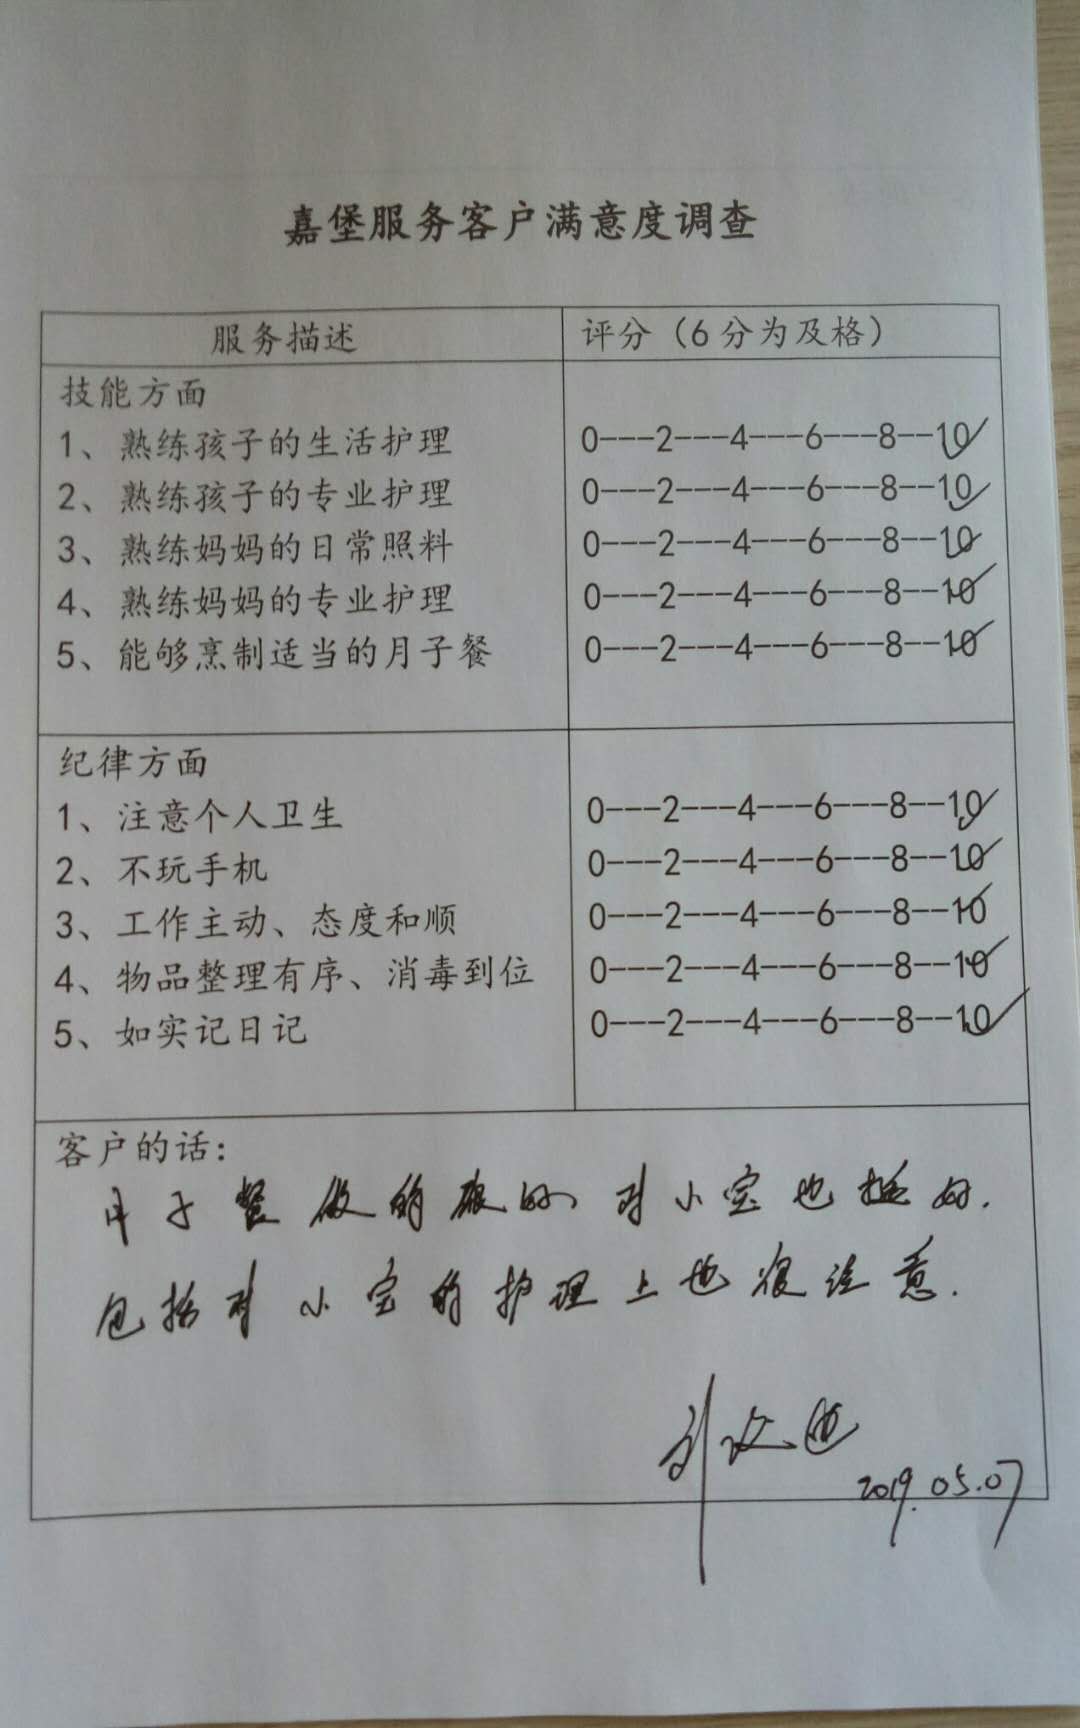 嘉堡服务客户满意度调查
服务描述
评分（6分为及格）
技能方面
1、熟练孩子的生活护理 0---2---4---6---8--10
2、熟练孩子的专业护理 0---2---4---6---8--10
3、熟练妈妈的日常照料 0---2---4---6---8--10
4、熟练妈妈的专业护理 0---2---4---6---8--10
5、能够烹制适当的月子餐 0---2---4---6---8--10
纪律方面
1、注意个人卫生 0---2---4---6---8--10
2、不玩手机 0---2---4---6---8--10
3、工作主动、态度和顺 0---2---4---6---8--10
4、物品整理有序、消毒到位 0---2---4---6---8--10
5、如实记日记 0---2---4---6---8--10
客户的话：
月子餐做的很好，对小宝也挺好.
包括对小宝的护理上也很注意.
2019.05.07